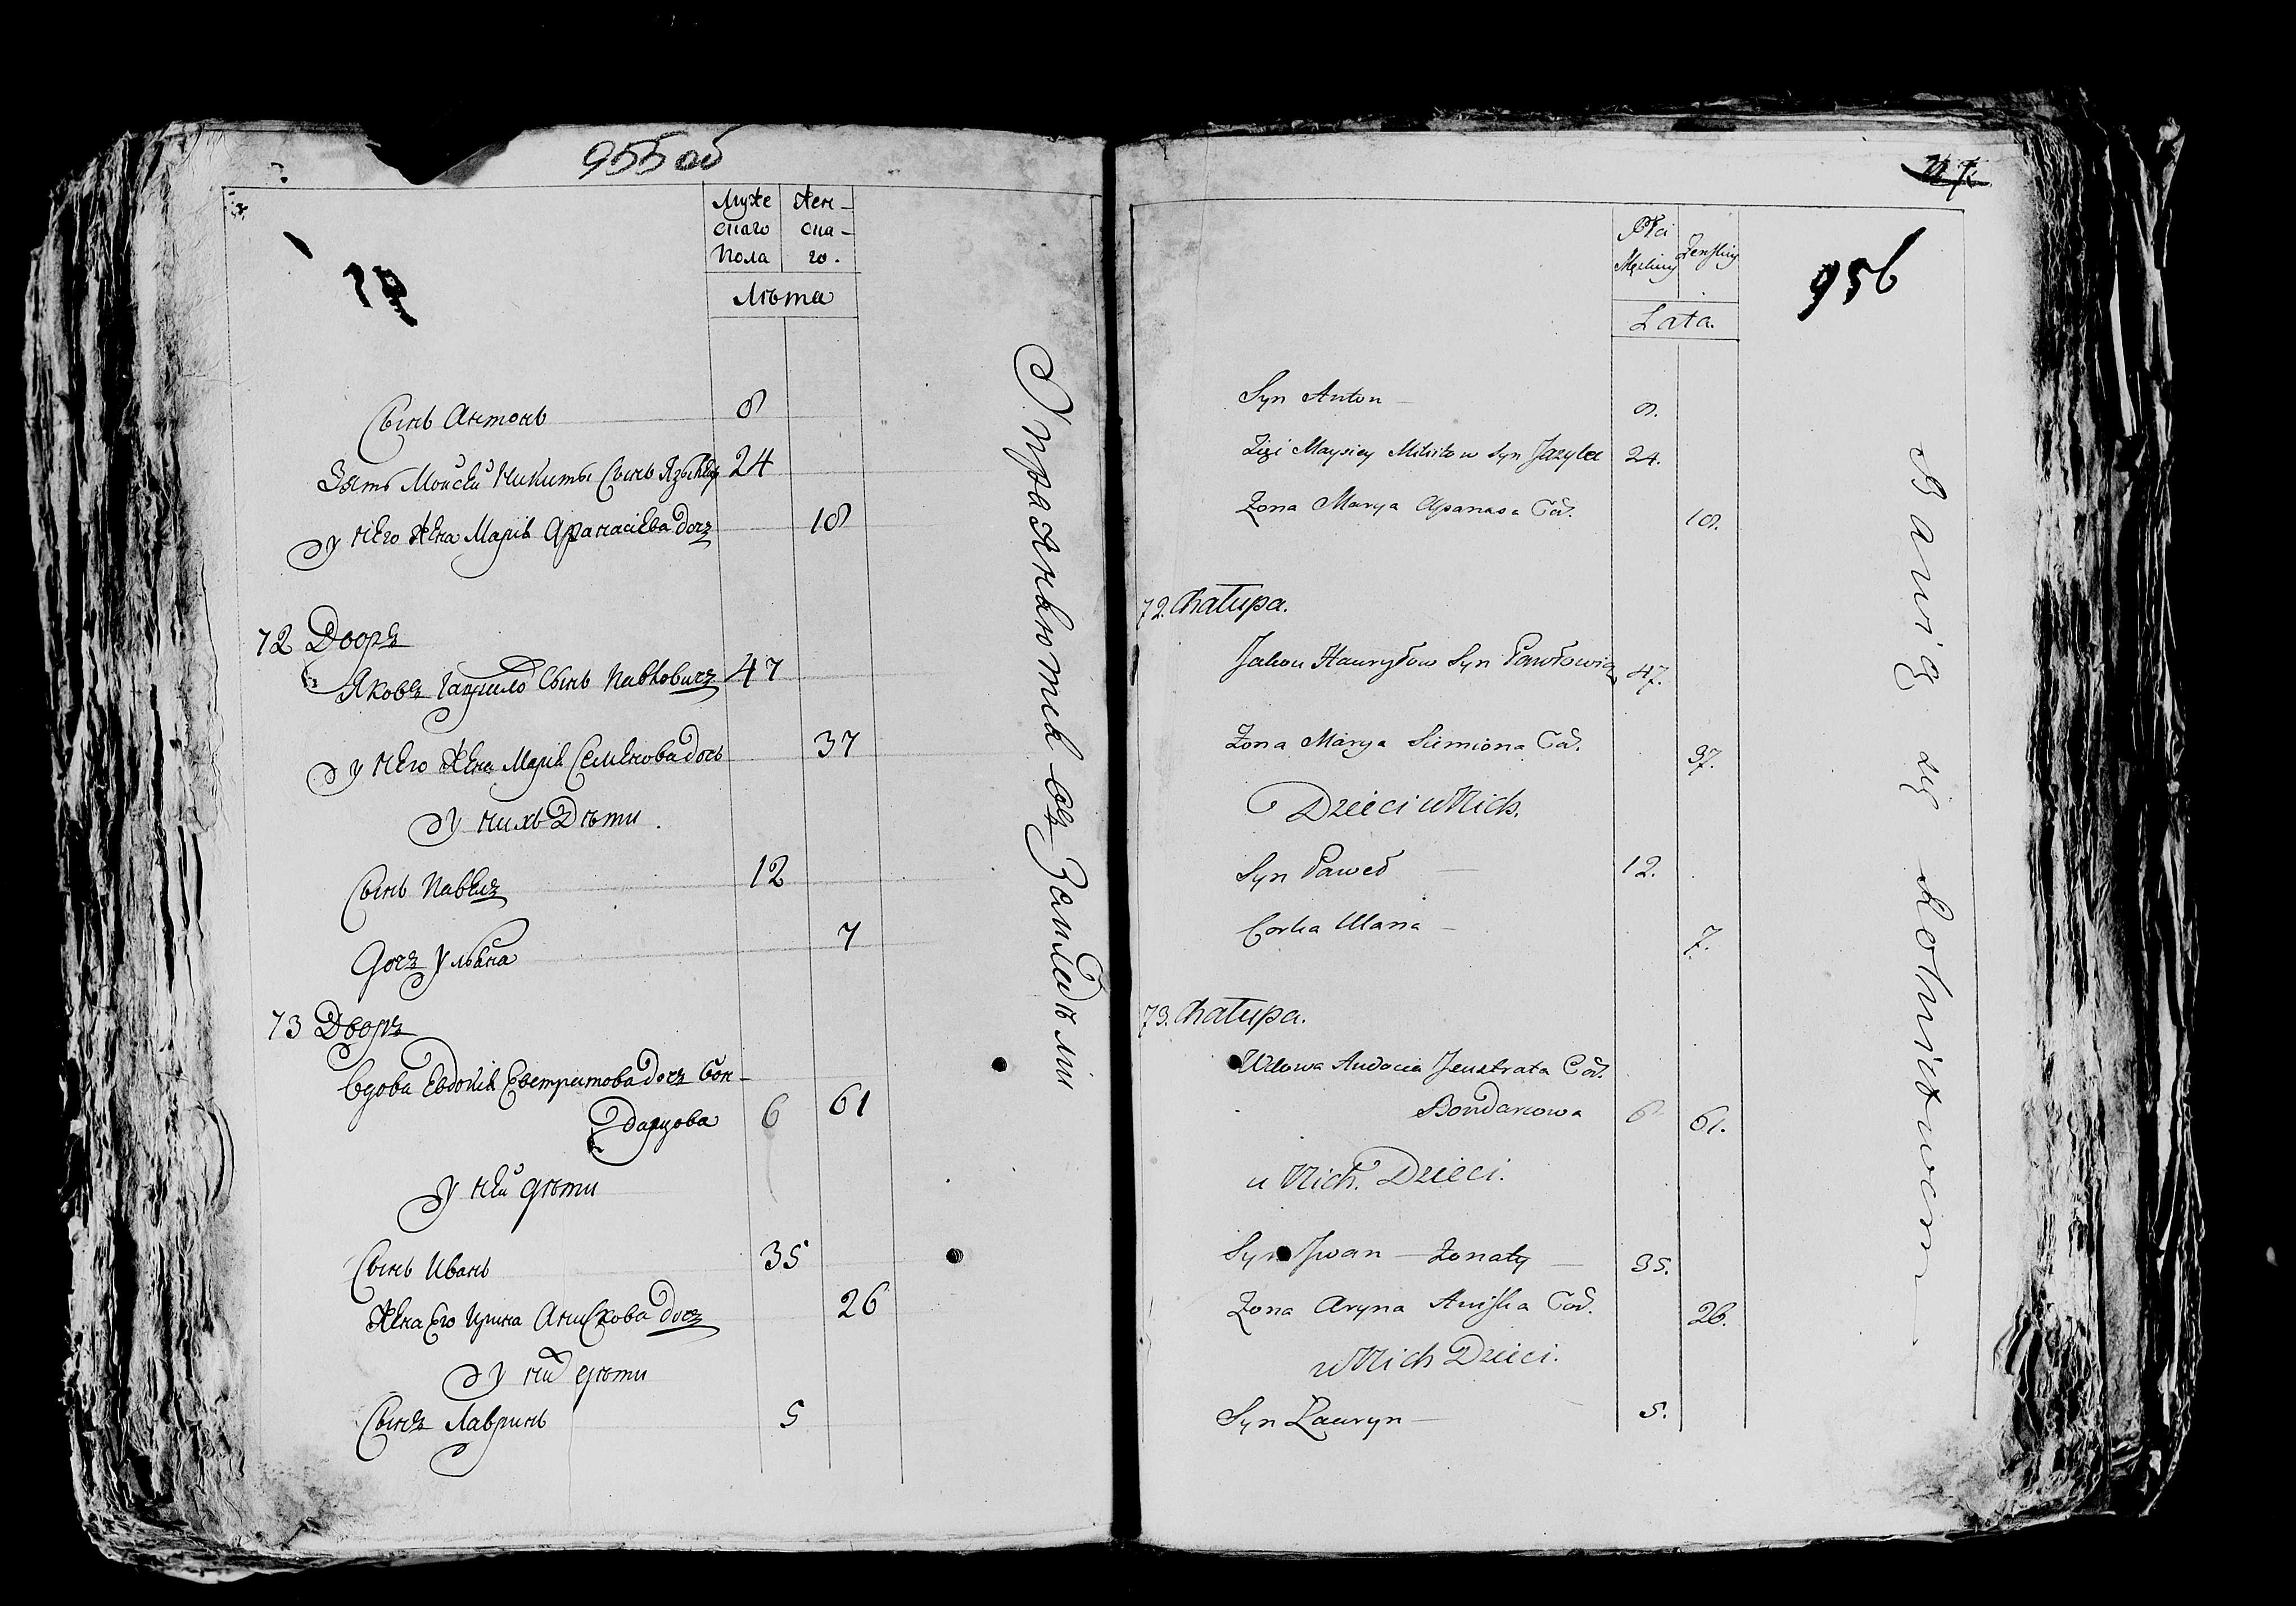 955 об
Муже Жен-
скаго ска-
Пола го.
Лѣта
Сынъ Антонъ 8
Зять Моисей Никиты Сынъ 24
у него жена Марія Афанасіева дочъ 18
72 Дворъ
Яковъ Гаврило Сынъ Павловичъ 47
у него жена Марія Семенова дочь 37
у нихъ Дѣти.
Сынъ Павелъ 12
Дочъ Ульяна 7
73 Дворъ
Вдова Евдокія Евстратова дочъ Бон-
дарцова 6 61
у ней дѣти
Сынъ Иванъ 35
Жена Его Ирина Анискова дочъ 26
у них дѣти
Сынъ Лавринъ 5
Упражняются въ Земледѣліи
956
Płci
Męskiey Żenskiey
Lata.
Syn Anton — 8.
Zięć Maysiey Mikitow Syn Jazyka 24.
Żona Marya Apanasa Cór. 18.
72. Chałupa.
Jakow Hawryłow Syn Pawłowicz 47.
Żona Marya Siemiona Cór. 37.
Dzieci u Nich.
Syn Paweł — 12.
Corka Ulana — 7.
73. Chałupa.
Wdowa Audocia Jeustrata Cór.
Bondarcowa 6 61.
u Nich. Dzieci.
Syn Jwan — Żonaty — 35.
Żona Aryna Aniska Cór. 26.
u Nich Dzieci.
Syn Łauryn — 5.
Bawią się Rolnictwem